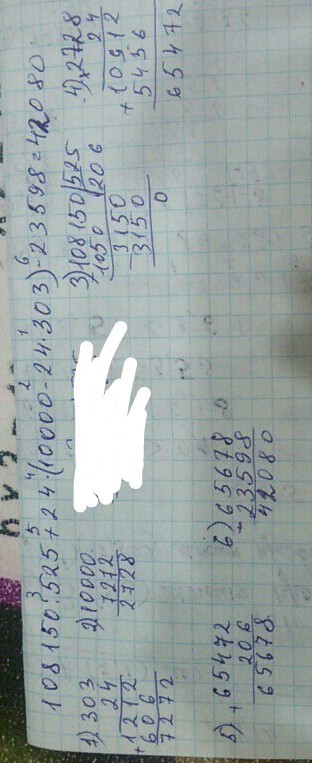 3 5 4 2 1 6
108150:525+24·(10000-24·303)-23598=42080
1) 303
24
+1212
606
7272
2) 10000
7272
2728
3) 108150|525
1050 |206
3150
3150
0
4) x2728
24
+10912
5456
65472
5) +65472
206
65678
6) -65678
23598
42080